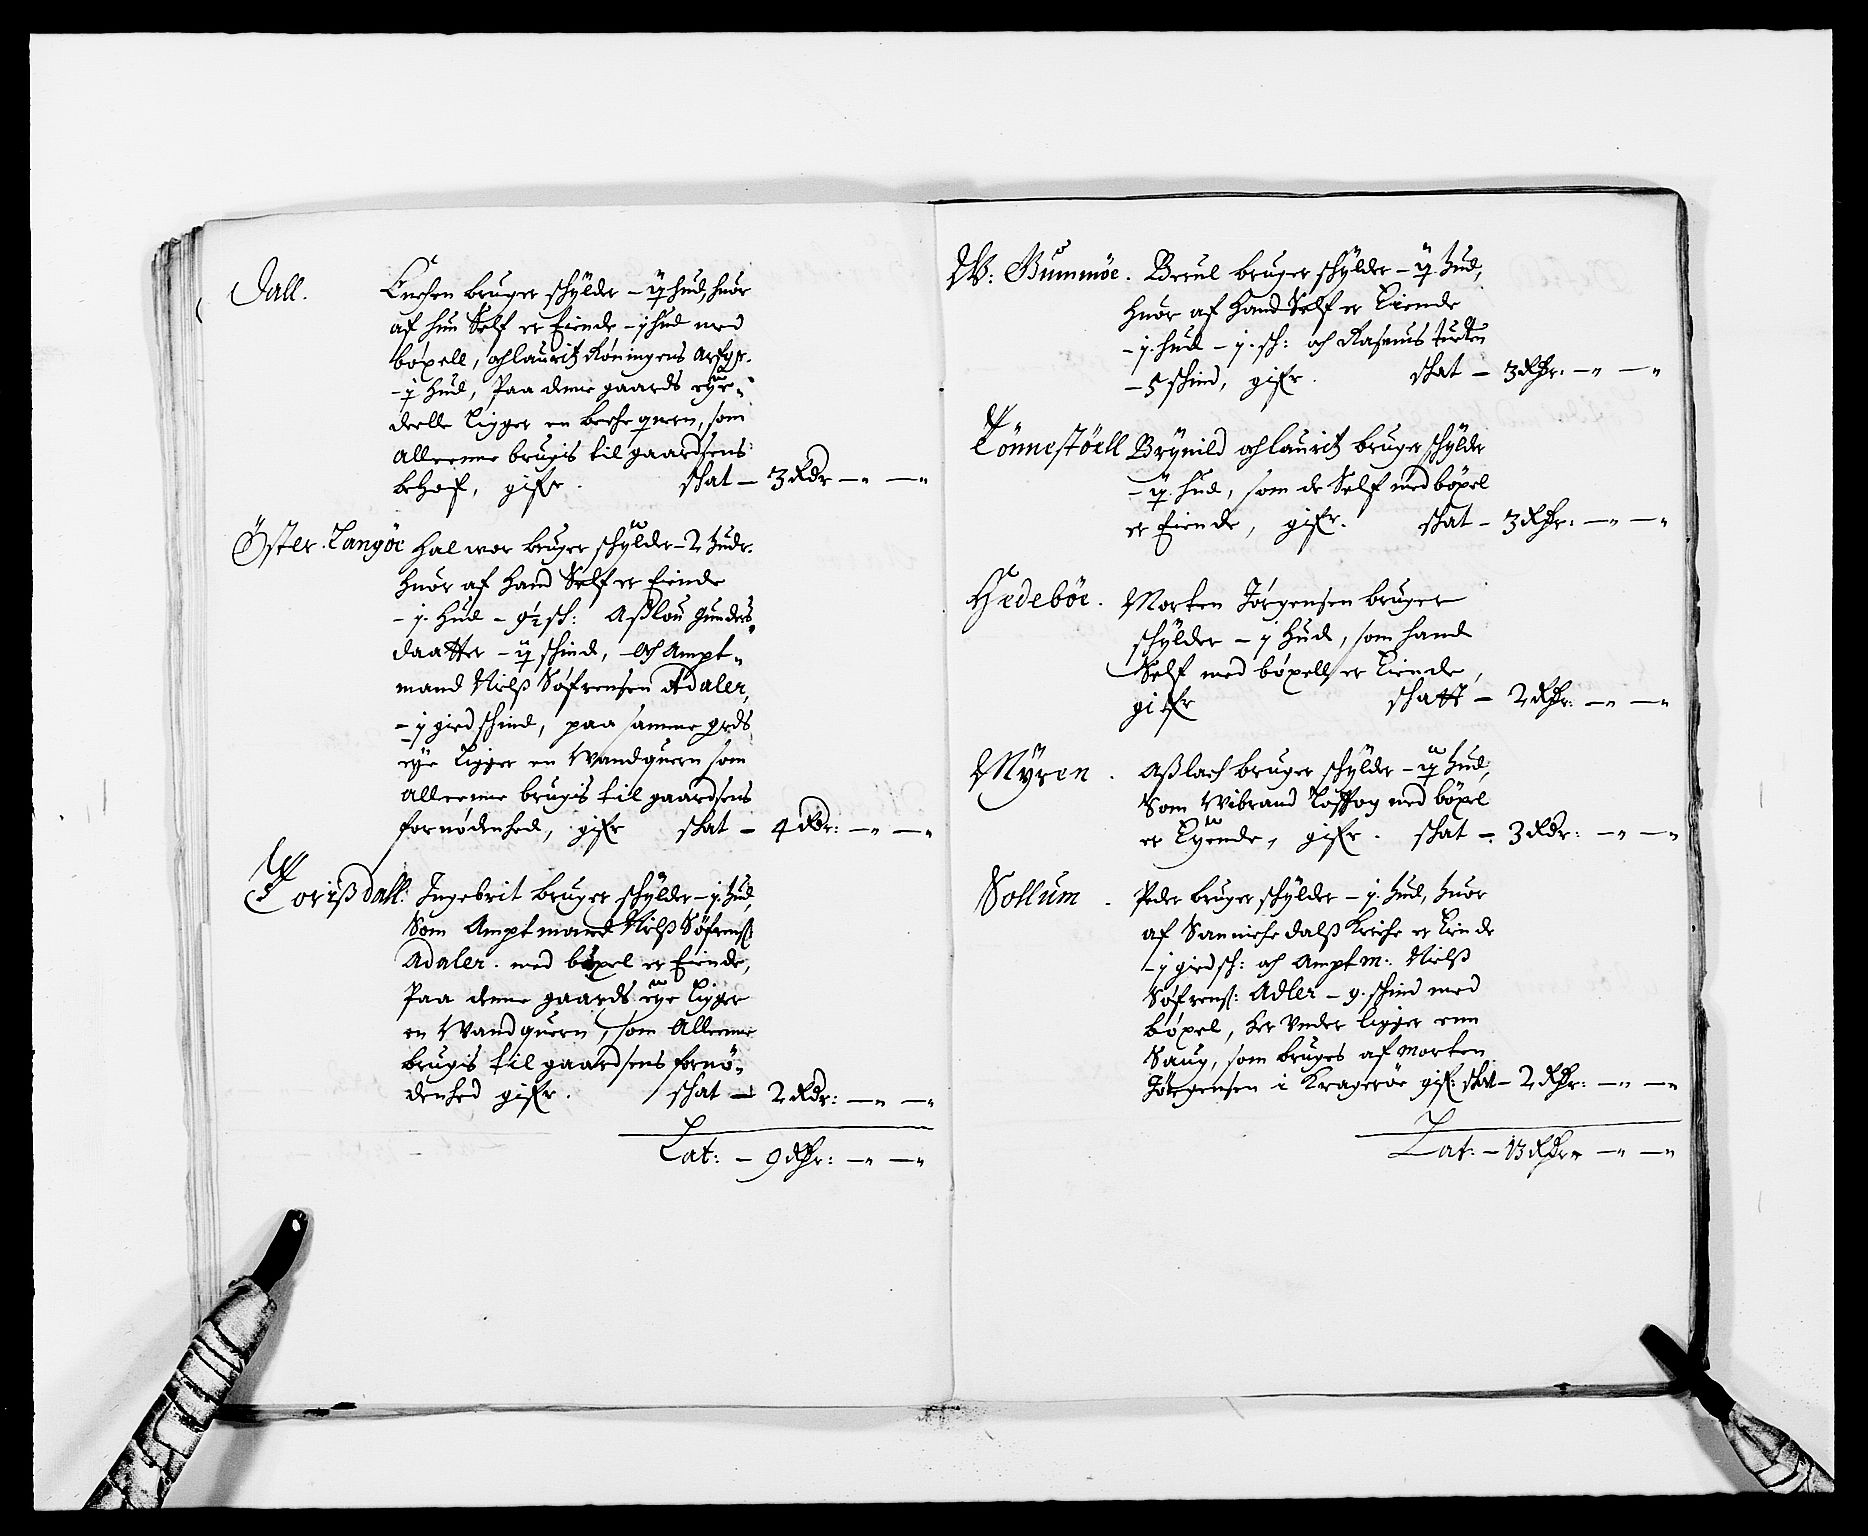 Dall. Enchen bruger schÿlder – ij hud, huor
af hun Self er Eiende – j hud med
böxell, och lauritz Köningens Arfger.
– j Hud, Paa denne gaards eÿe-
deelle Ligger en beche quern, som
alleenne brugis til gaardsens
behof, gifr. schat – 3 Rdr – " – "
Öster. Langöe Haluor bruger schÿlder – 2 hudr.
Huor af Hand Self er Eiende
– j. Hud – 9½ sch: Aßlou Gunders
daatter – ij schind, och Ampt-
mand Nielß Söfrensen Adaler,
– j gied schind, paa samme grds
eÿe Ligger en Wandquern som
alleenne brugis til gaardsens
fornödenhed, gifr schat – 4 Rdr: – " – "
Torißdall: Ingebrit bruger schÿlder – j. hud,
Som Amptmand Nielß Söfrenß:
Adaler. med böxel er Eiende,
Paa denne gaards eÿe Ligger
en Wandquern, som Alleenne
brugis til gaardsens fornö-
denhed gifr. schat – 2 Rdr: – " – "
Lat: – 9 Rdr: – " – "
W: Gummöe. Breul bruger schÿlder – ij. hud,
Huor af Hand Self er Eiende
– j. hud – j. sch: och Rasmus turten
– 5 schind, gifr. schat – 3 Rdr: – " – "
Tönnestöell Brÿnild och lauritz bruger schÿlder
– ij. Hud, som de Self med böxel
er Eiende, gifr. schat – 3 Rdr: – " – "
Hedeböe. Morten Jörgensen bruger
schÿlder – j Hud, som hand
Self med böxell er Eiende,
gifr schatt – 2 Rdr: – " – "
Mÿren. Aßlach bruger schÿlder – ij hud,
Som Wibrand med böxel
er Eÿende, gifr. schat – 3 Rdr: – " – "
Sollum. Peder bruger schÿlder – j. hud, huor
af Sannichedalß Kirche er Eiende
– j gied sch: och Amptm: Nielß
Söfrenß: Adler – 9. schind med
böxel, her Vnder ligger enn
Saug, som bruges af Morten
Jörgensen i Krageröe gif: schat – 2 Rdr: – " – "
Lat: – 13 Rdr – " – "